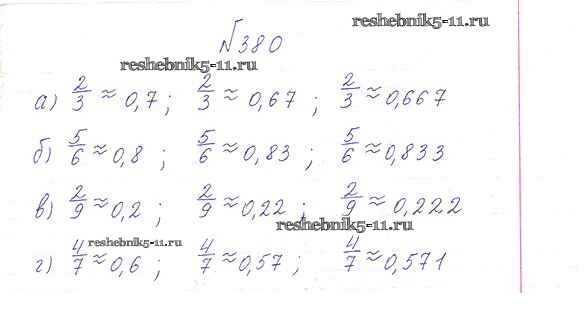 reshebnik5-11.ru
№380
reshebnik5-11.ru
а) 2/3 ≈ 0,7; 2/3 ≈ 0,67; 2/3 ≈ 0,667
б) 5/6 ≈ 0,8; 5/6 ≈ 0,83; 5/6 ≈ 0,833
в) 2/9 ≈ 0,2; 2/9 ≈ 0,22; 2/9 ≈ 0,222
reshebnik5-11.ru
reshebnik5-11.ru
г) 4/7 ≈ 0,6; 4/7 ≈ 0,57; 4/7 ≈ 0,571